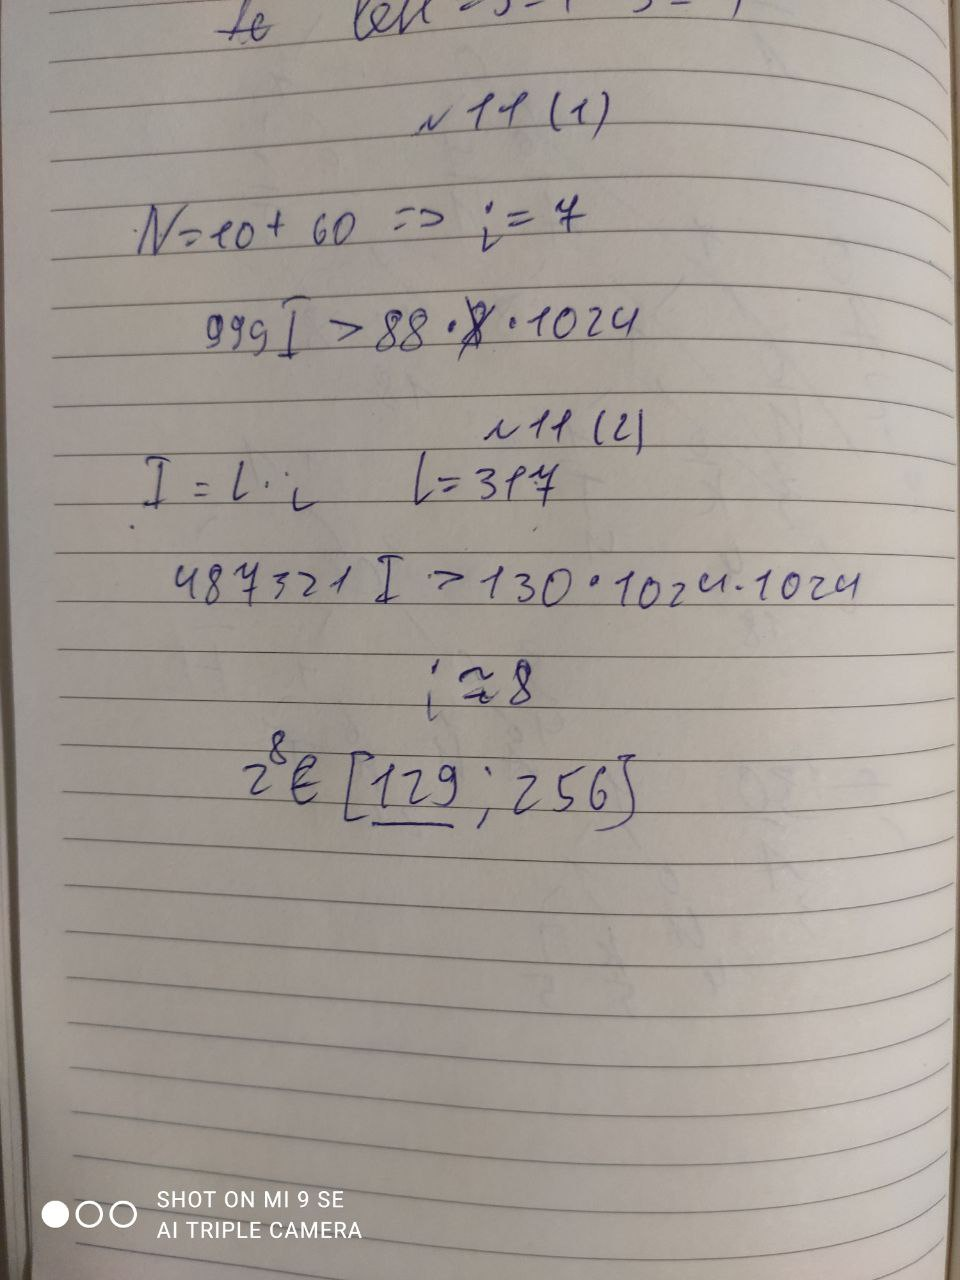 №11 (1)
N=10+60 => i=7
999I > 88·8·1024
№11 (2)
I = l·i l=317
487321 I > 130·1024·1024
i ≈ 8
2⁸ € [129; 256]
SHOT ON MI 9 SE
AI TRIPLE CAMERA